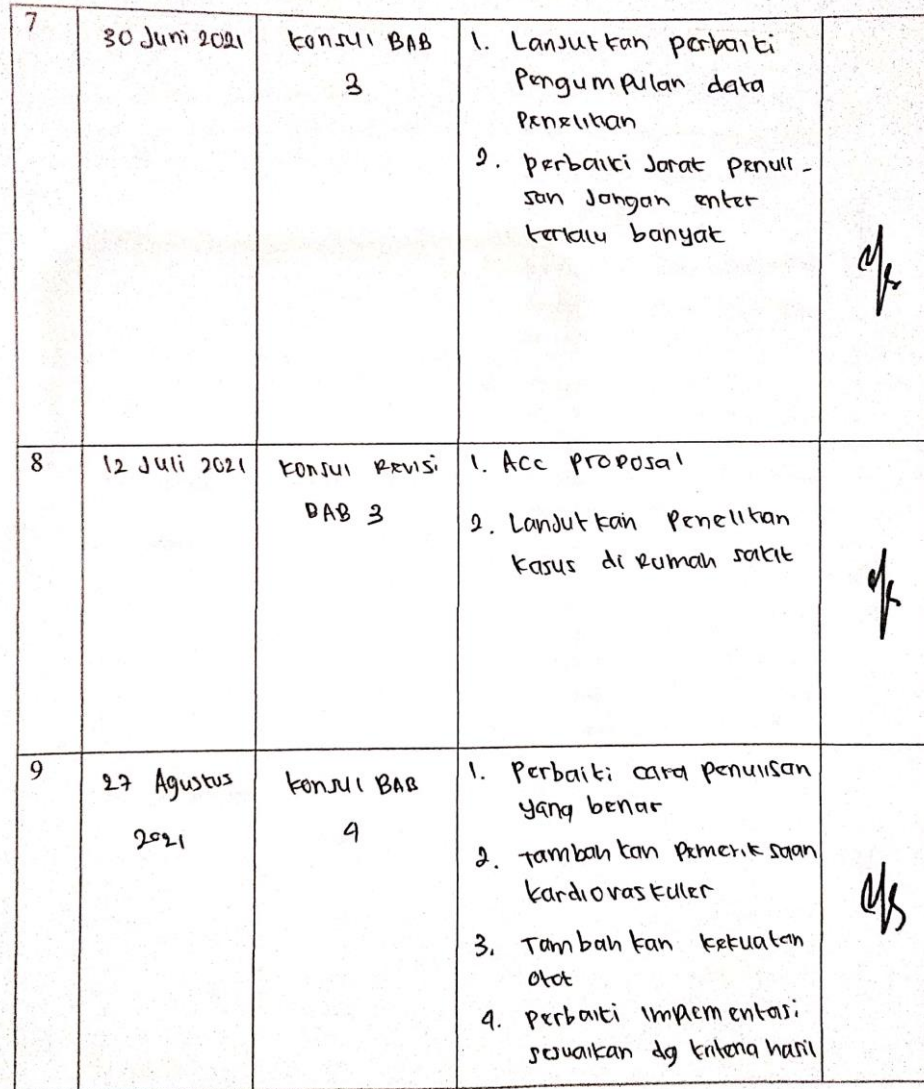 7
30 Juni 2021
Konsul BAB
3
1. Lanjutkan perbaiki
Pengumpulan data
Penelitian
2. perbaiki Jarak penuli-
san Jangan enter
terlalu banyak
8
12 Juli 2021
Konsul Revisi
BAB 3
1. Acc proposal
2. Lanjutkan Penelitian
kasus di Rumah sakit
9
27 Agustus
2021
Konsul BAB
4
1. Perbaiki cara penulisan
yang benar
2. Tambahkan Pemeriksaan
kardiovaskuler
3. Tambahkan kekuatan
otot
4. perbaiki implementasi
sesuaikan dg kriteria hasil